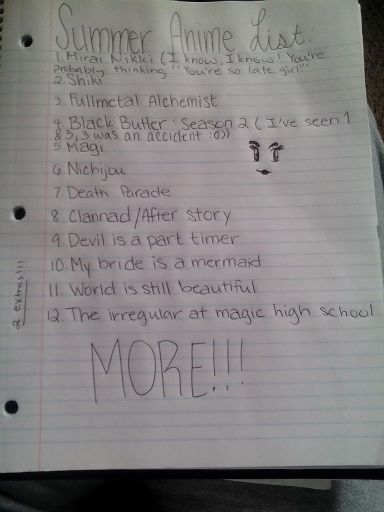 Summer Anime List:
1. Mirai Nikki (I know, I know! You're
probably thinking "You're so late girl"
2. Shiki
3. Fullmetal Alchemist
4. Black Butler: Season 2 (I've seen 1
& 3, 3 was an accident :0))
5. Magi
6. Nichijou
7. Death Parade
8. Clannad/After story
9. Devil is a part timer
10. My bride is a mermaid
11. World is still beautiful
12. The irregular at magic high school
2 extras!!!
MORE!!!